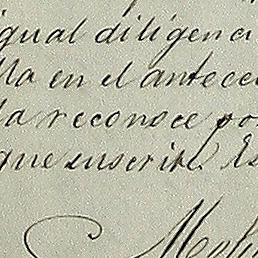 igual diligenci
lla en el antece
la reconoce por
que suscribe. Es